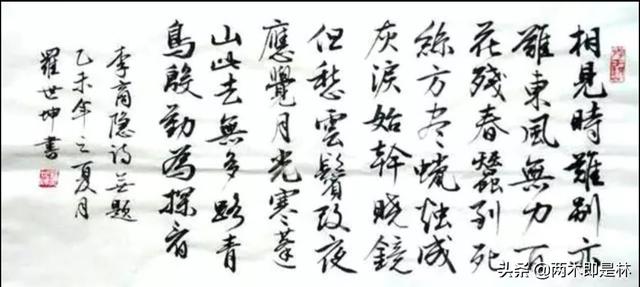 相見時難别亦
難東風無力百
花殘春蠶到死
絲方尽蜡炬成
灰淚始幹晓鏡
但愁雲鬢改夜
應覺月光寒蓬
山此去無多路青
鳥殷勤為探看
李商隐詩無题
乙未年之夏月
羅世坤書
头条 @两木即是林